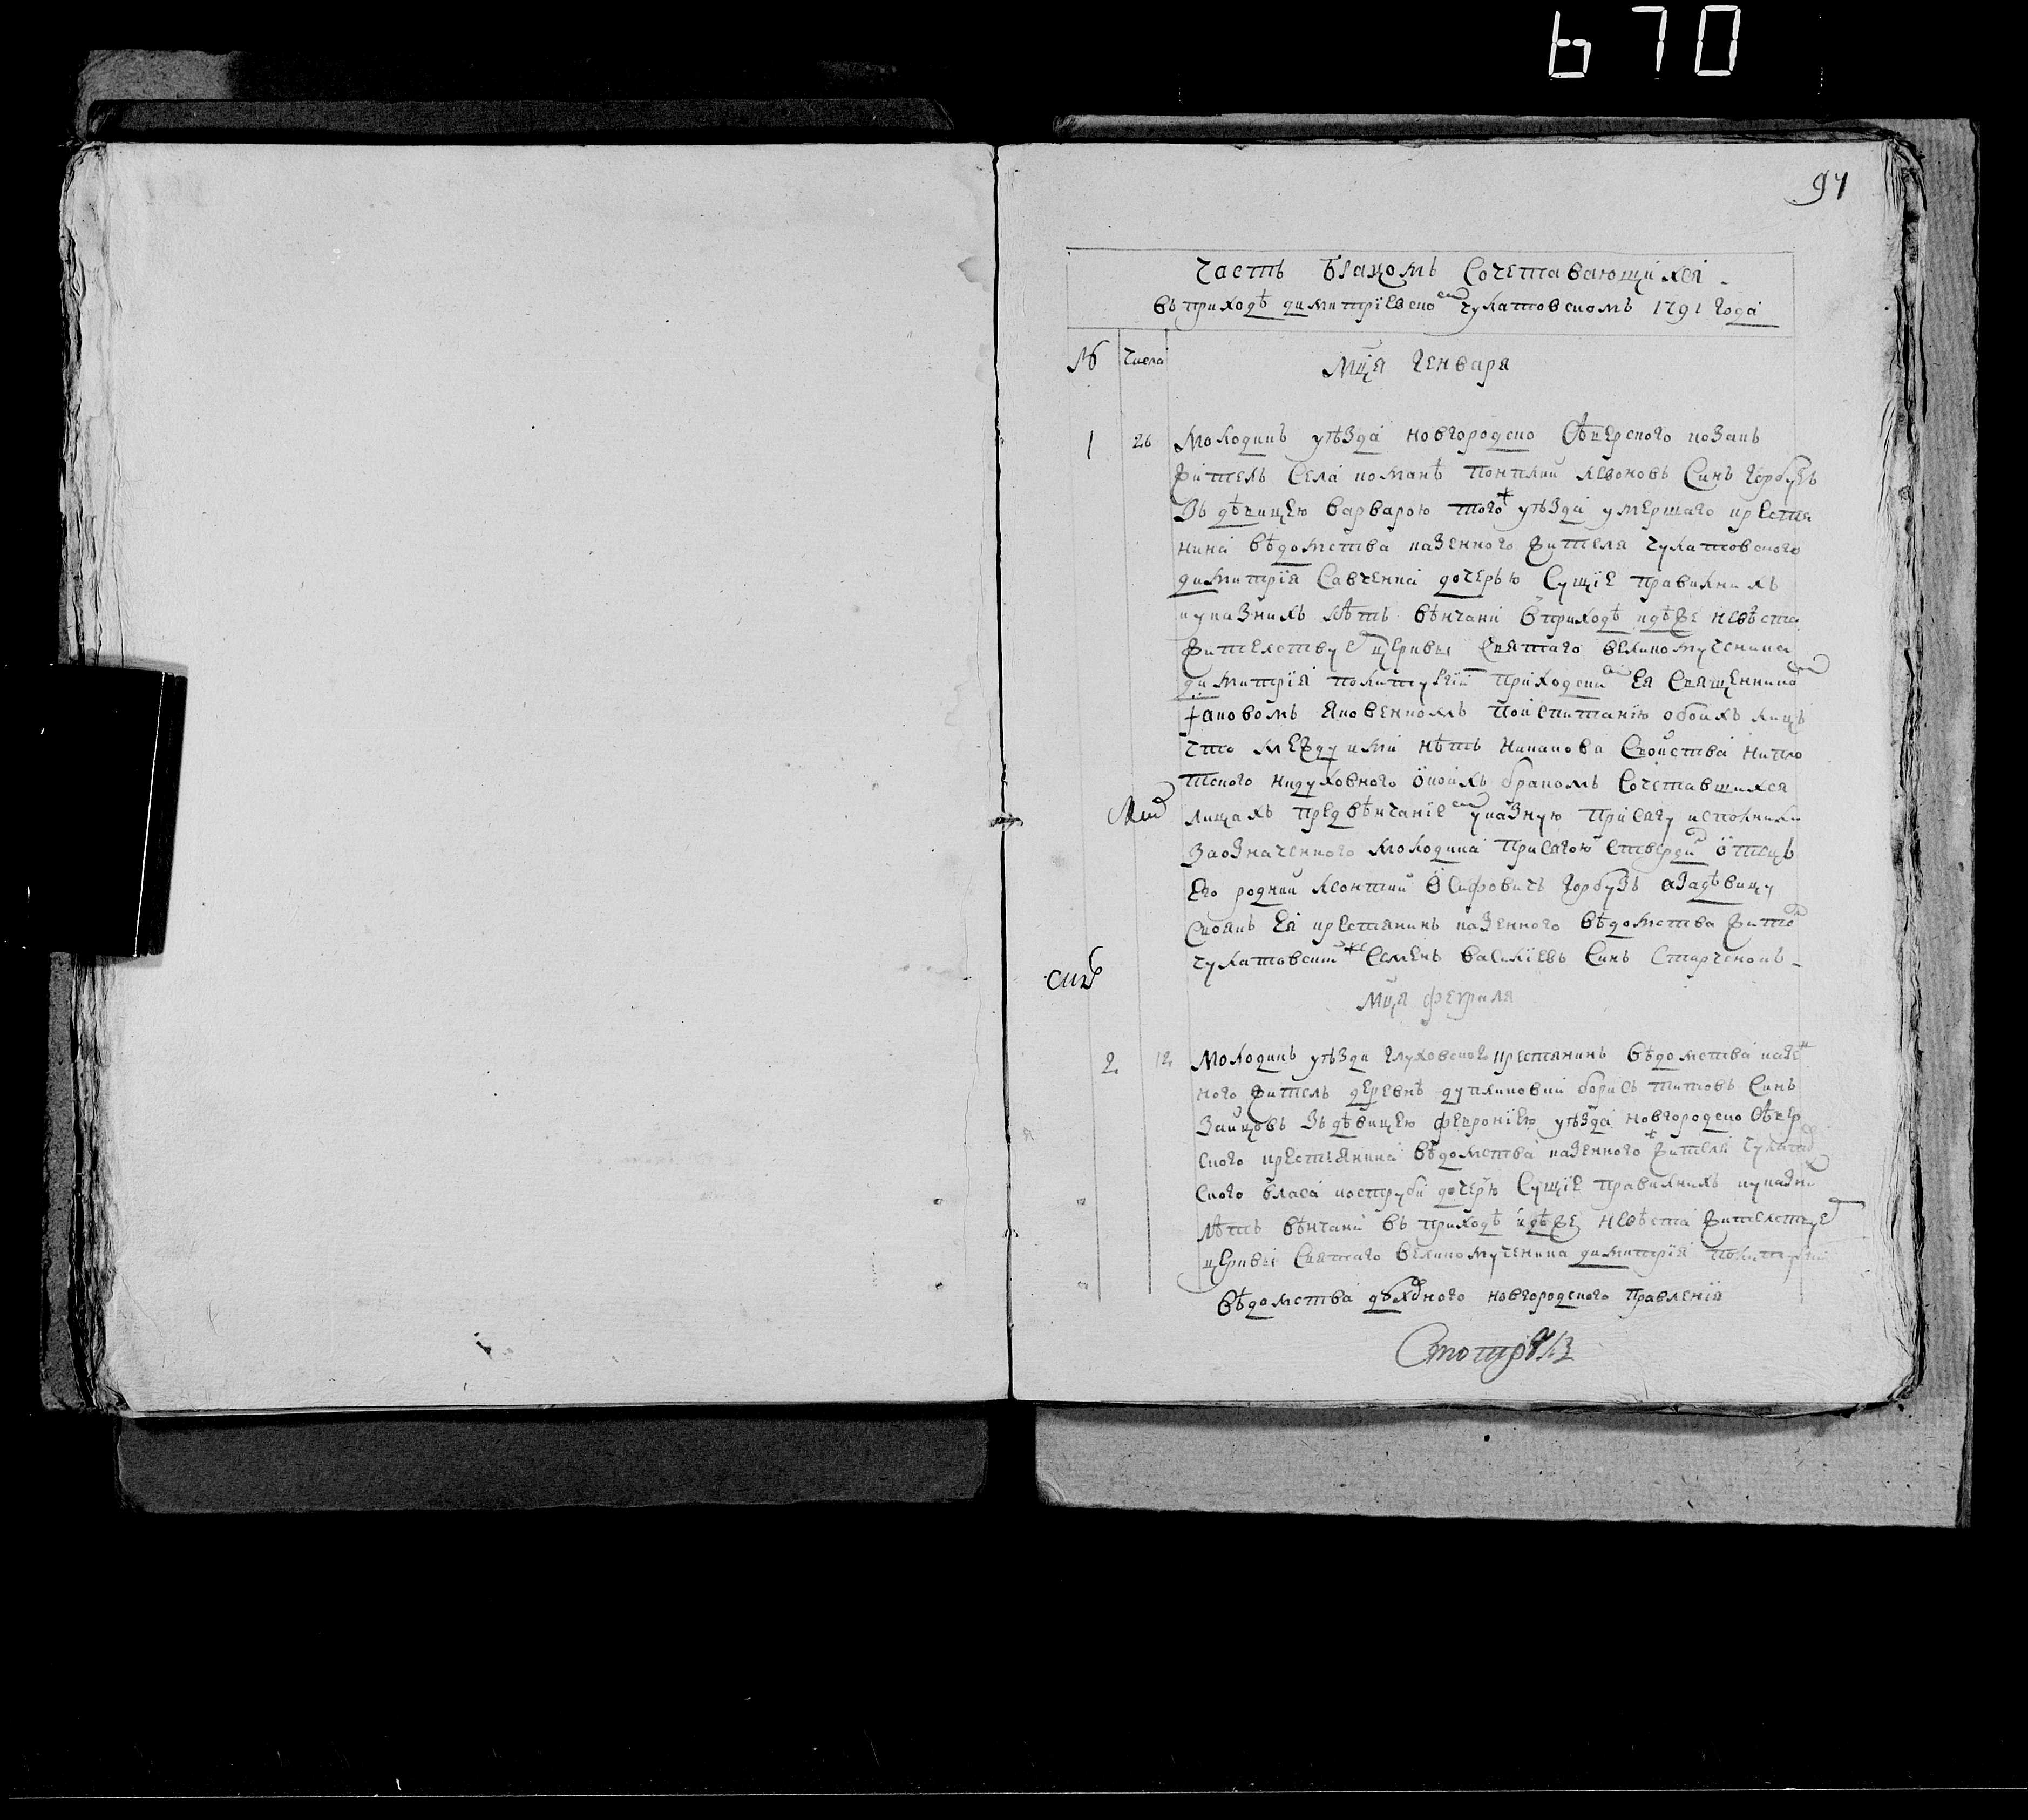 670
94
Часть браком Сочетавающихся
въ приходѣ димитрїевско чулатовскомъ 1791 года
№ Числа Мца Генваря
1 26 Молодикъ уѣзда новгородско Сѣверского козакъ
житель Села команѣ Левоновъ Синъ Горбузъ
Зъ дѣвицею варварою того ж уѣзда умершаго крестя
нина вѣдомства казенного жителя чулатовского
димитрїя Савченка дочерью Сущїе правилнихъ
и указнихъ лѣтъ вѣнчани въ приходѣ идѣже невѣста
жителствуе церкви Святаго великомученика
димитрїя приходски ея Священнико
Яковенкомъ По испитанїю обоихъ лицъ
что между ими нѣтъ никакова Свойства ни пло
тского ни духовного о коихъ бракомъ Сочетавшихся
лицахъ предвѣнчанїе указную присягу исполнили
За означенного молодика присягою ствердил отецъ
Его родний Леонтий Осифовичъ Горбузъ а за дѣвицу
Своякъ Ея крестянинъ казенного вѣдомства жител
чулатовский же Семенъ Василїевъ Синъ Старченокъ
Мца февраля
2 12 Молодикъ уѣзда Глуховского крестянинъ вѣдомства казен
ного житель деревнѣ борисъ титовъ Синъ
Зайцовъ Зъ дѣвицею феврониею уѣзда новгородско Сѣвер
ского крестьянина вѣдомства казенного жителя чулатов
ского власа коструби дочерю Сущїе правилнихъ и указни
лѣтъ вѣнчани въ приходѣ идѣже невѣста жителствуе
церкви Святаго великомученика димитрїя
вѣдомства духовного новгородского Правленїя